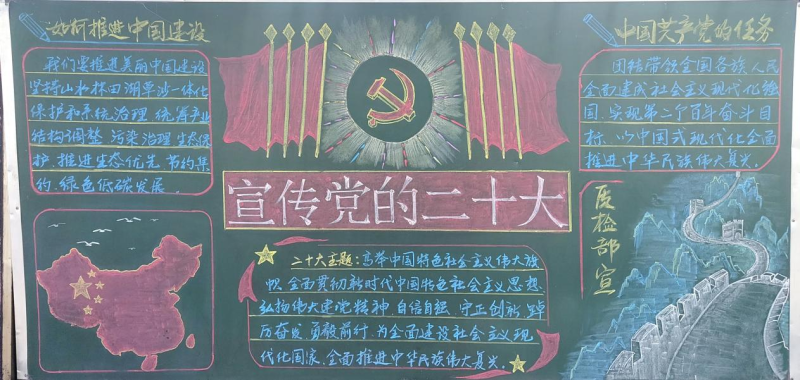 如何推进中国建设
我们要推进美丽中国建设
坚持山水林田湖草沙一体化
保护和系统治理,统筹产业
结构调整,污染治理,生态保
护,推进生态优先,节约集
约,绿色低碳发展.
宣传党的二十大
二十大主题:高举中国特色社会主义伟大旗
帜,全面贯彻新时代中国特色社会主义思想
弘扬伟大建党精神,自信自强、守正创新,踔
厉奋发、勇毅前行,为全面建设社会主义现
代化国家、全面推进中华民族伟大复兴.
中国共产党的任务
团结带领全国各族人民
全面建成社会主义现代化强
国,实现第二个百年奋斗目
标,以中国式现代化全面
推进中华民族伟大复兴.
质检部宣